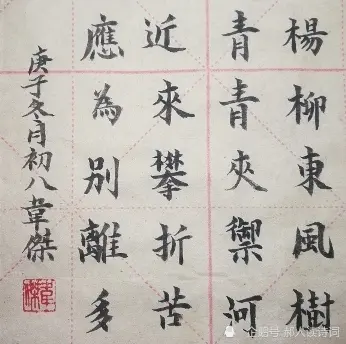 楊柳東風樹
青青夾禦河
近來攀折苦
應為別離多
庚子冬月初八韋傑
韋傑
企鵝号 郝人读诗词